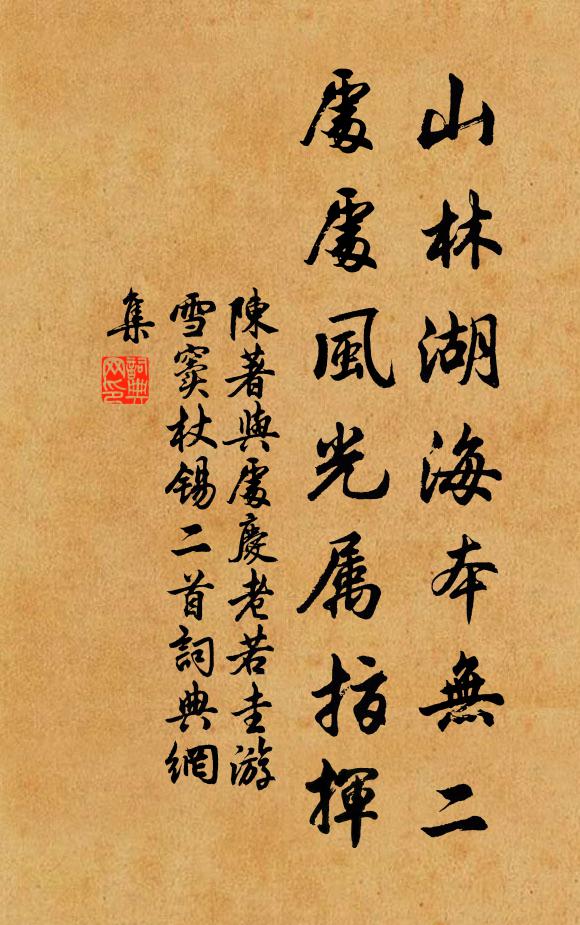 山林湖海本無二
處處風光属指揮
陳著與處慶老若圭游
雪竇杖錫二首詞典網
集
詞典
网印